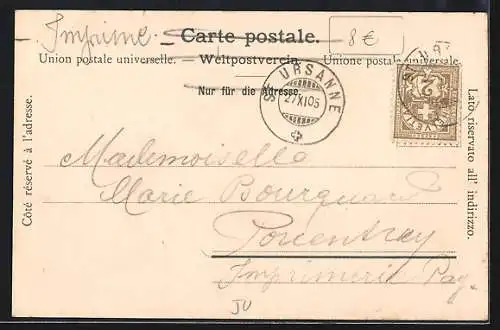 Imprimé.
Carte postale.
8 €
Union postale universelle. — Weltpostverein. — Unione postale universale.
Nur für die Adresse.
ST URSANNE
27 XI 05
2
HELVETIA
Côté réservé à l'adresse.
Lato riservato all' indirizzo.
Mademoiselle
Marie Bourquard
Porrentruy
Imprimerie
JU